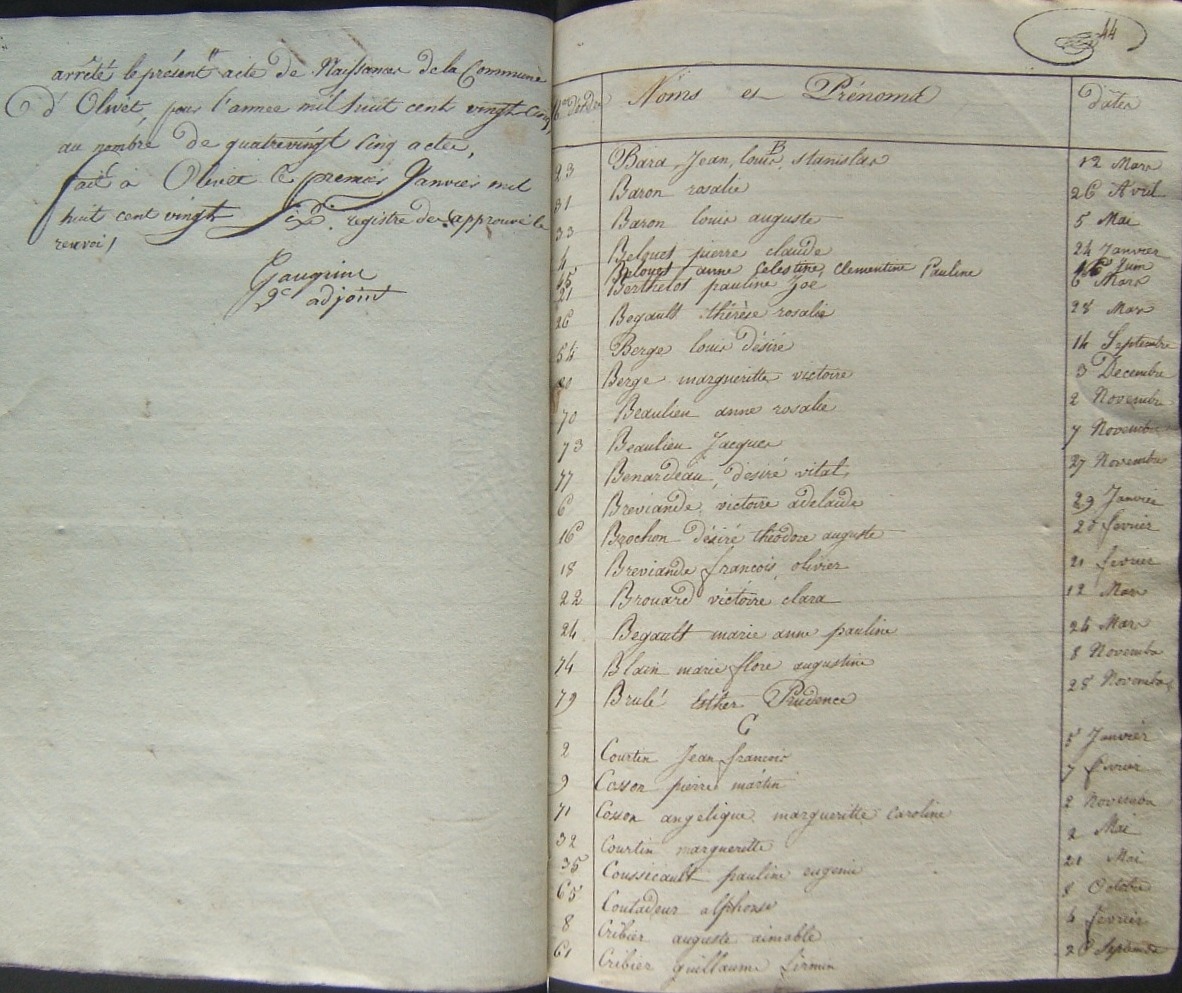 arrêté le présent acte de Naissances de la Commune
d'Olivet, pour l'année mil huit cent vingt Cinq,
au nombre de quatrevingt Cinq actes,
fait à Olivet le premier Janvier mil
huit cent vingt six. registre des approuvé le
renvoi /
Gaugrine
2e adjoint
44
Nos d'ordre Noms et Prénoms dates
B
23 Bara, Jean, louis, stanislas 12 Mars
31 Baron rosalie 26 Avril
33 Baron louis auguste 5 Mai
4 Belouet pierre claude 24 Janvier
45 Belouet anne Celestine, Clementine Pauline Juin
21 Berthelot pauline Zoé 6 Mars
26 Begault thérèse rosalie 28 Mars
54 Berge louis désiré 14 Septembre
80 Berge margueritte victoire 3 Decembre
70 Beaulieu anne rosalie 2 Novembre
73 Beaulieu Jacques 7 Novembre
77 Benardeau, désiré vital 27 Novembre
6 Breviande victoire adelaide 29 Janvier
16 Brochon désiré théodore auguste 20 fevrier
18 Breviande françois olivier 21 fevrier
22 Brouard victoire clara 12 Mars
24 Begault marie anne pauline 24 Mars
74 Blain marie flore augustine 8 Novembre
79 Brulé Esther Prudence 28 Novembre
C
2 Courtin Jean francois 5 Janvier
9 Cosson pierre martin 7 fevrier
71 Cosson angelique margueritte Caroline 2 Novembre
32 Courtin margueritte 2 Mai
35 Coussicault pauline eugenie 21 Mai
65 Coutadeur alphonse 8 Octobre
8 Cribier auguste aimable 4 fevrier
61 Cribier guillaume firmin 26 Septembre